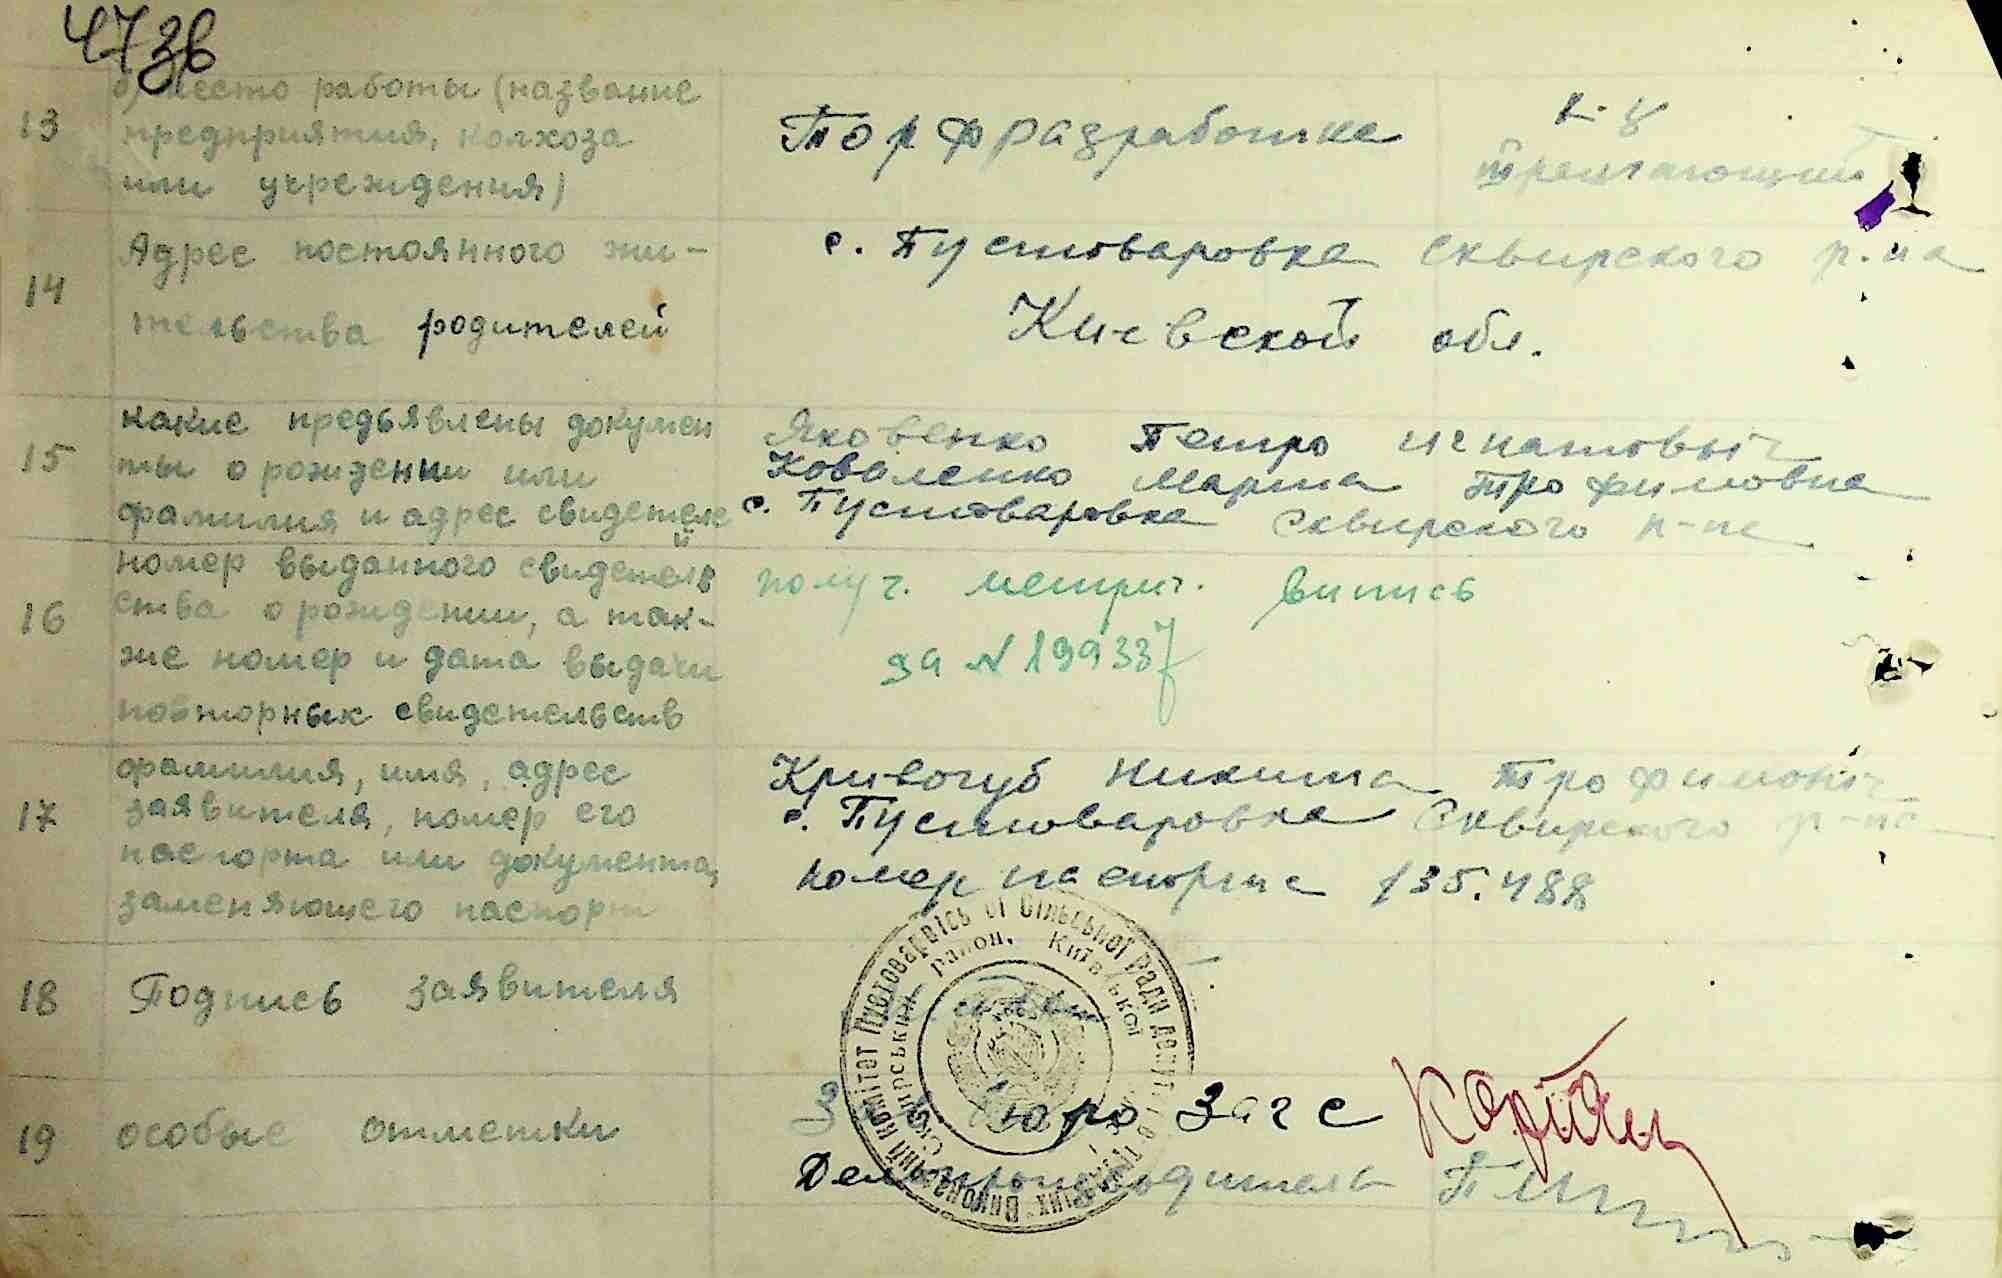 473в
13
б) место работы (название
предприятия, колхоза
или учреждения)
Торфразработка
к-з
14
Адрес постоянного жи-
тельства родителей
с. Пустоваровка Сквирского р-на
Киевской обл.
15
какие предъявлены докумен
ты о рождении или
фамилия и адрес свидетеле
й
Яковенко Петро Игнатовыч
Коваленко Мария Трофимовна
с. Пустоваровка Сквирского р-на
16
номер выданного свидетель
ства о рождении, а так-
же номер и дата выдачи
повторных свидетельств
получ. метрич. випись
за N 199337
17
фамилия, имя, адрес
заявителя, номер его
паспорта или документа,
заменяющего паспорт
Кривогуб Никита Трофимович
с. Пустоваровка Сквирского р-на
номер паспорта 135.488
18
Подпись заявителя
19
особые отметки
Виконавчий комітет Пустоварівської Сільської Ради депутатів трудящих
Сквирський район, Київської
Зав бюро Загс
Делопроизводитель